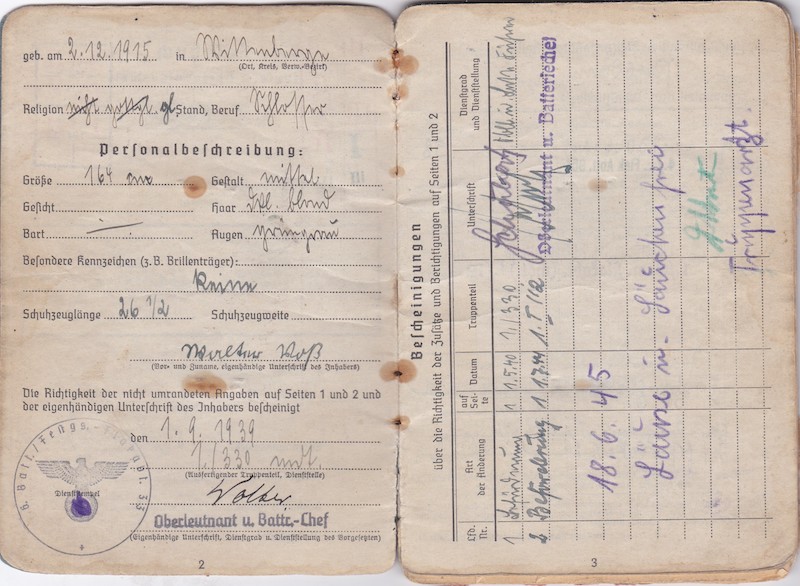 geb. am 2.12.1915 in Wittenberge
(Ort, Kreis, Verw.-Bezirk)
Religion nicht gottgl. gl Stand, Beruf Schlosser
Personalbeschreibung:
Größe 164 cm Gestalt mittel
Gesicht Haar dkl. blond
Bart — Augen grüngrau
Besondere Kennzeichen (z. B. Brillenträger):
keine
Schuhzeuglänge 26 1/2 Schuhzeugweite
Walter Voß
(Vor- und Zuname, eigenhändige Unterschrift des Inhabers)
Die Richtigkeit der nicht umrandeten Angaben auf Seiten 1 und 2 und
der eigenhändigen Unterschrift des Inhabers bescheinigt
den 1.9.1939
1./330
(Ausfertigender Truppenteil, Dienststelle)
Dienststempel
Oberleutnant u. Battr.-Chef
(Eigenhändige Unterschrift, Dienstgrad u. Dienststellung des Vorgesetzten)
2
Bescheinigungen
über die Richtigkeit der Zusätze und Berichtigungen auf Seiten 1 und 2
Lfd. Nr. Art der Änderung auf Seite Datum Truppenteil Unterschrift Dienstgrad und Dienststellung
1 1 1.5.40 1./330
2 Beförderung 1 1.7.41
u. Batteriechef
18.6.45
Läuse u. Seuchenfrei
Truppenarzt.
3